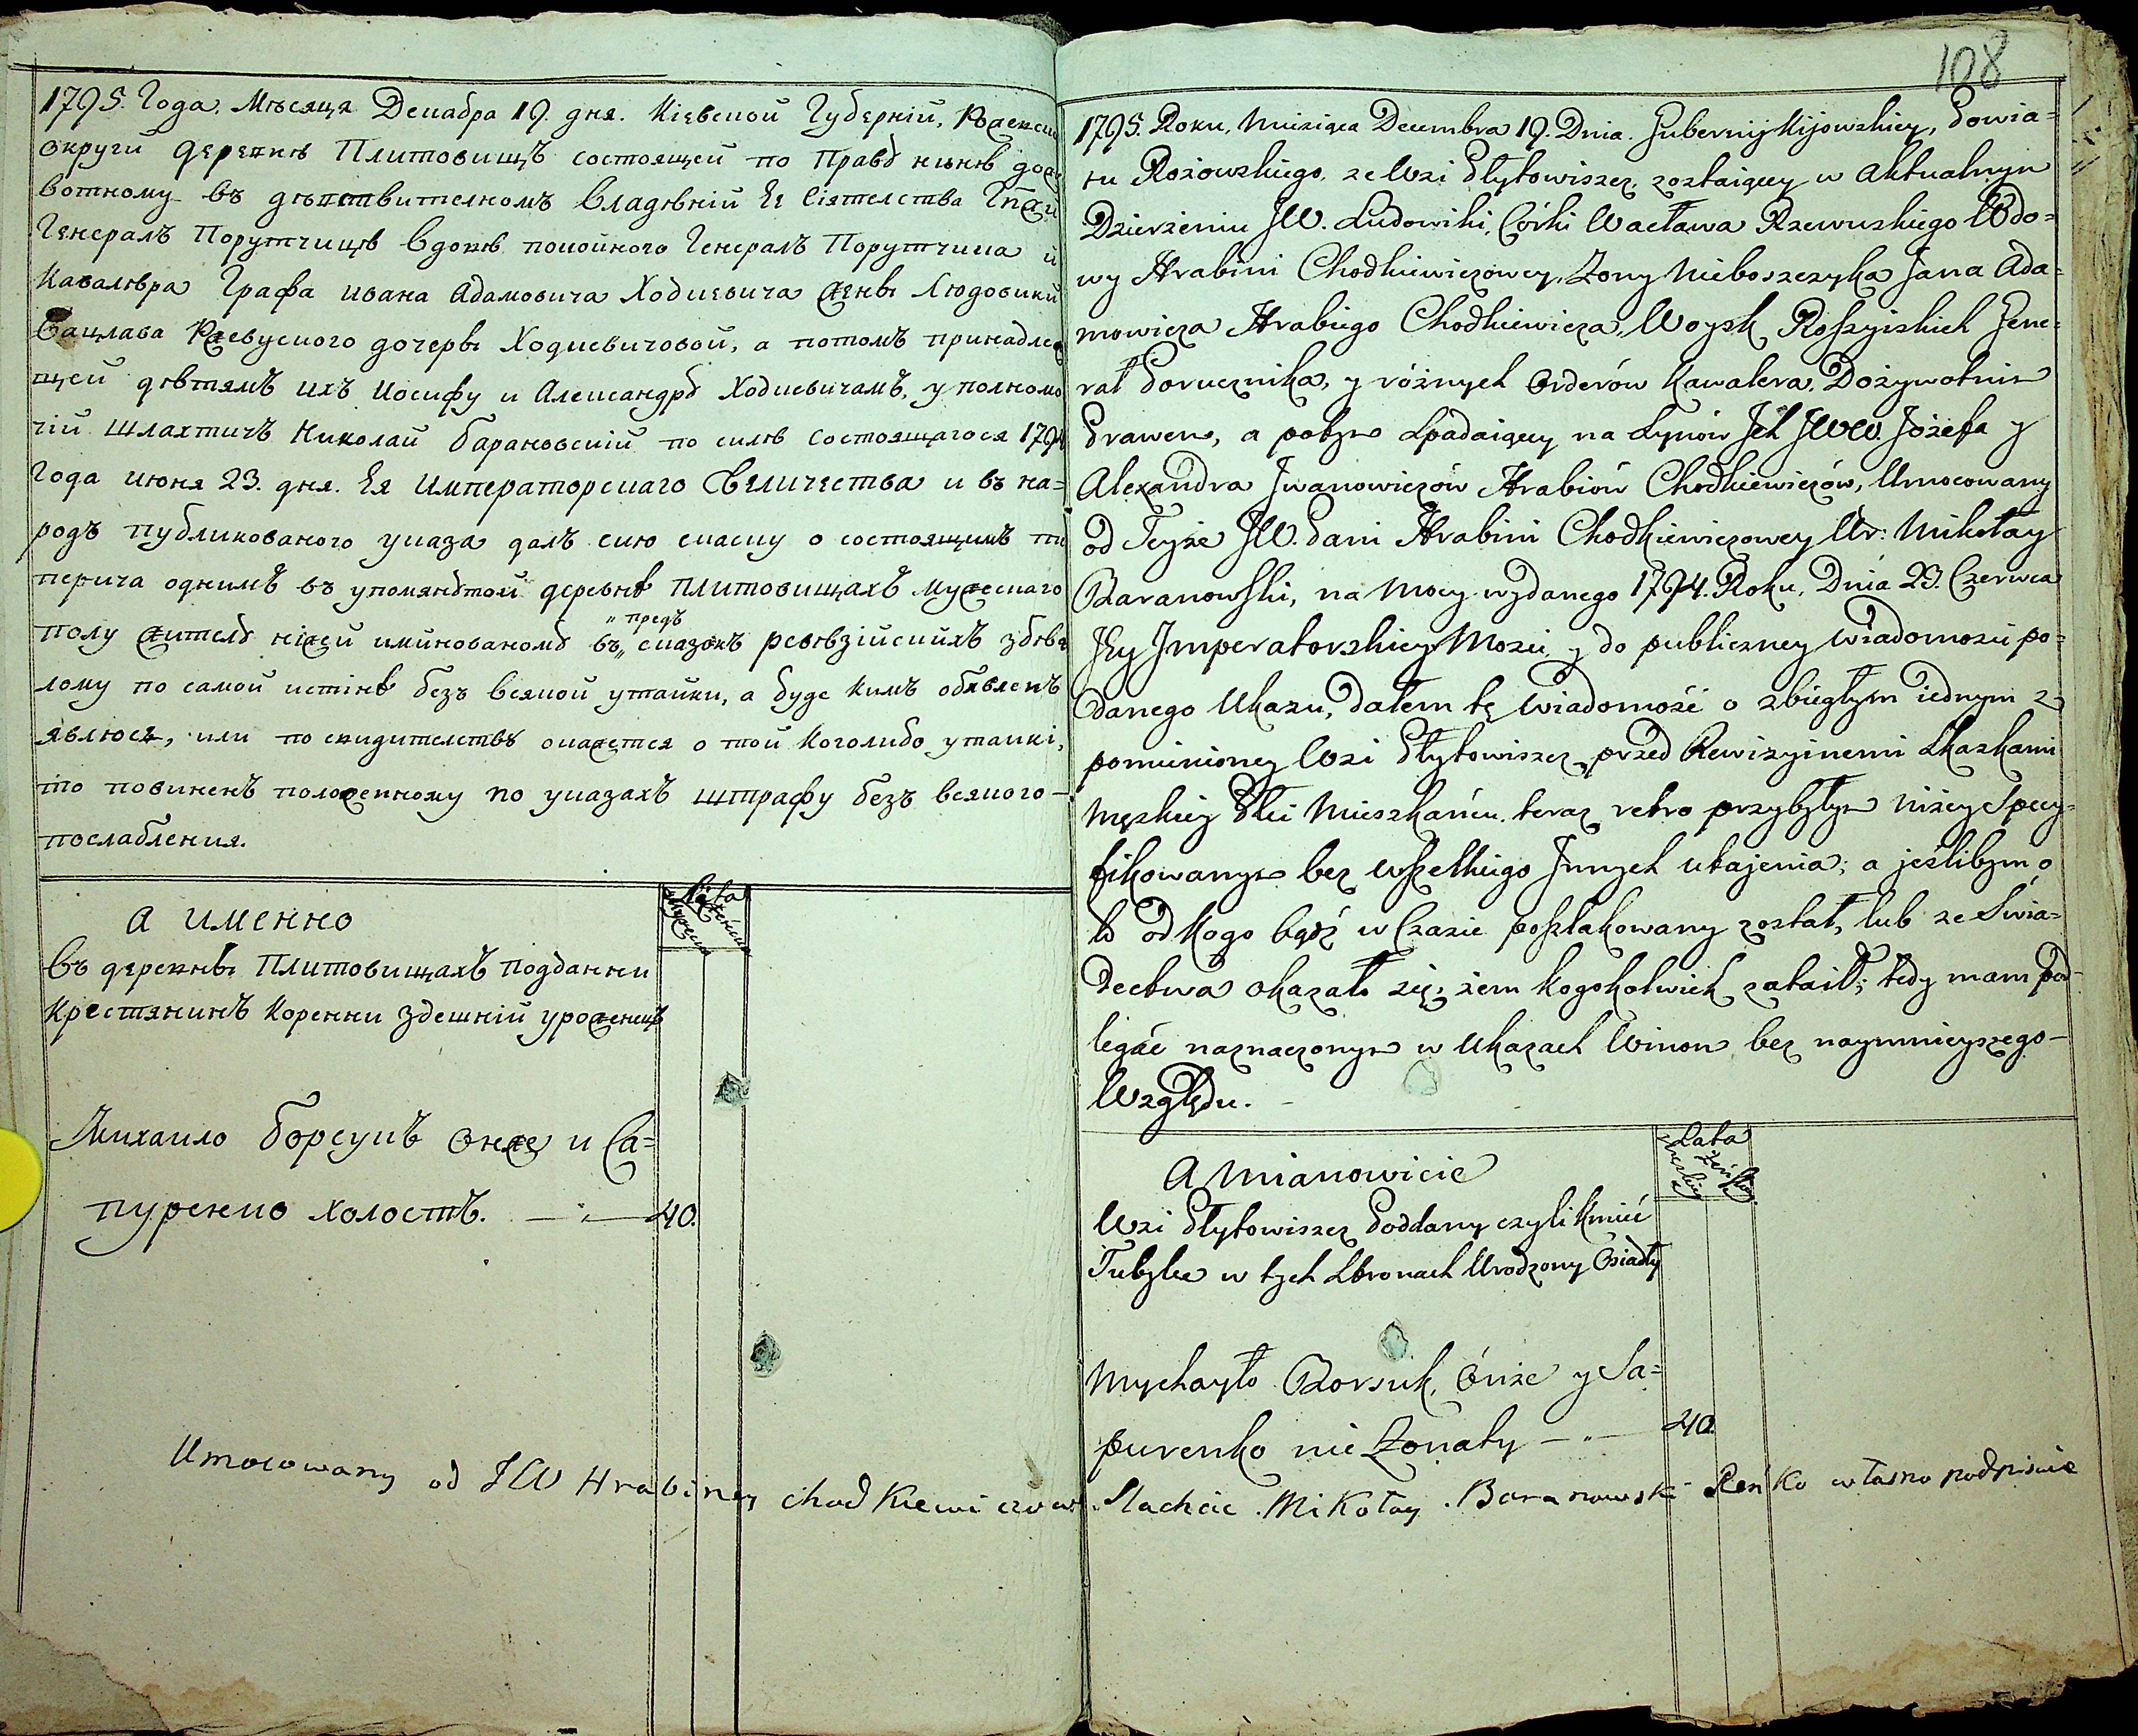 1795. Года, Мѣсяця Декабра 19. дня. Кіевской Губерніи,
округи деревнѣ Плитовищъ состоящей по
вотному въ дѣйствителномъ владѣніи Ея Сіятелства
Генералъ Порутчицѣ вдовѣ покойного Генералъ Порутчика и
Кавалѣра Графа Ивана Адамовича Ходкевича женѣ Людовики
Вацлава Ржевуского дочерѣ Ходкевичовой, а потомъ принадлеж
щей дѣтямъ ихъ Иосифу и Александрȣ Ходкевичамъ, уполномо
чій шлахтичъ Николай Барановскій по силѣ состоящагося 1794
Года июня 23. дня. Ея Императорскаго Величества и въ на=
родъ публикованого указа далъ сию скаску о состоящимъ
одним въ упомянȣтой деревнѣ Плитовищахъ мужескаго
полу жителȣ ніжей имѝнованомȣ въ „предъ„ сказокъ ревѣзійскихъ збѣг
лому по самой истінѣ безъ всякой утайки, а буде кимъ обявленъ
явлюсь, или по свидителствȣ окажется о той коголибо утайкі,
то повиненъ положенному по указахъ штрафу безъ всякого—
послабления.
Лѣта
Мужеск Женски
а именно
Въ деревнѣ Плитовищахъ подданни
крестянинъ коренни здешній уроженецъ
Михаило Борсукъ Онже и Са=
пуренко холостъ. — „ — 40.
108
1795. Roku, Miesiąca Decembra 19. Dnia. Gubernij Kijowskiey, Powia=
tu Rożowskiego, ze Wsi Płytowiszcz, zostaiącey w Aktualnym
Dzierżeniu JW. Ludowiki, Córki Wacława Rzewuskiego Wdo=
wy Hrabini Chodkiewiczowey, Żony Nieboszczyka Jana Ada=
mowicza Hrabiego Chodkiewicza, Woysk Roſsyiskich Jene=
rał Porucznika, y różnych Orderów Kawalera, Dożywotnim
Prawem, a potym Spadaiącey na Synów Jch JWW. Józefa y
Alexandra Jwanowiczów Hrabiów Chodkiewiczów, Umocowany
od Teyże JW. Pani Hrabini Chodkiewiczowey Ur: Mikołay
Baranowſki, na Mocy wydanego 1794. Roku, Dnia 23. Czerwca
Jey Jmperatorskiey Mości y do publiczney wiadomości po=
danego Ukazu, dałem tę wiadomość o zbiegłym iednym z
pomienioney Wsi Płytowiszcz, przed Rewizyinemi Skazkami
Męskiey Płci Mieszkańcu. teraz retro przybyłym niżey Specy=
fikowanym bez wſzelkiego Jnnych utajenia; a jeślibym o
to od kogo bądź w Czasie poſzlakowany został, lub ze Świa=
dectwa okazało się, żem kogokolwiek zataił; tedy mam pod=
legać naznaczonym w Ukazach Winom bez naymnieyszego—
Względu. —
Lata
Męskie żeńskie
A Mianowicie
Wsi Płytowiszcz Poddany czyli Kmieć
Tubylec w tych Stronach Urodzony Osiadły
Mychayło Borsuk, Ónże y Sa=
purenko nie Żonaty — „ — 40.
Umocowany od JW Hrabiney Chodkiewiczow. Slachcic. Mikołay. Baranowski Renko własno podpisuie